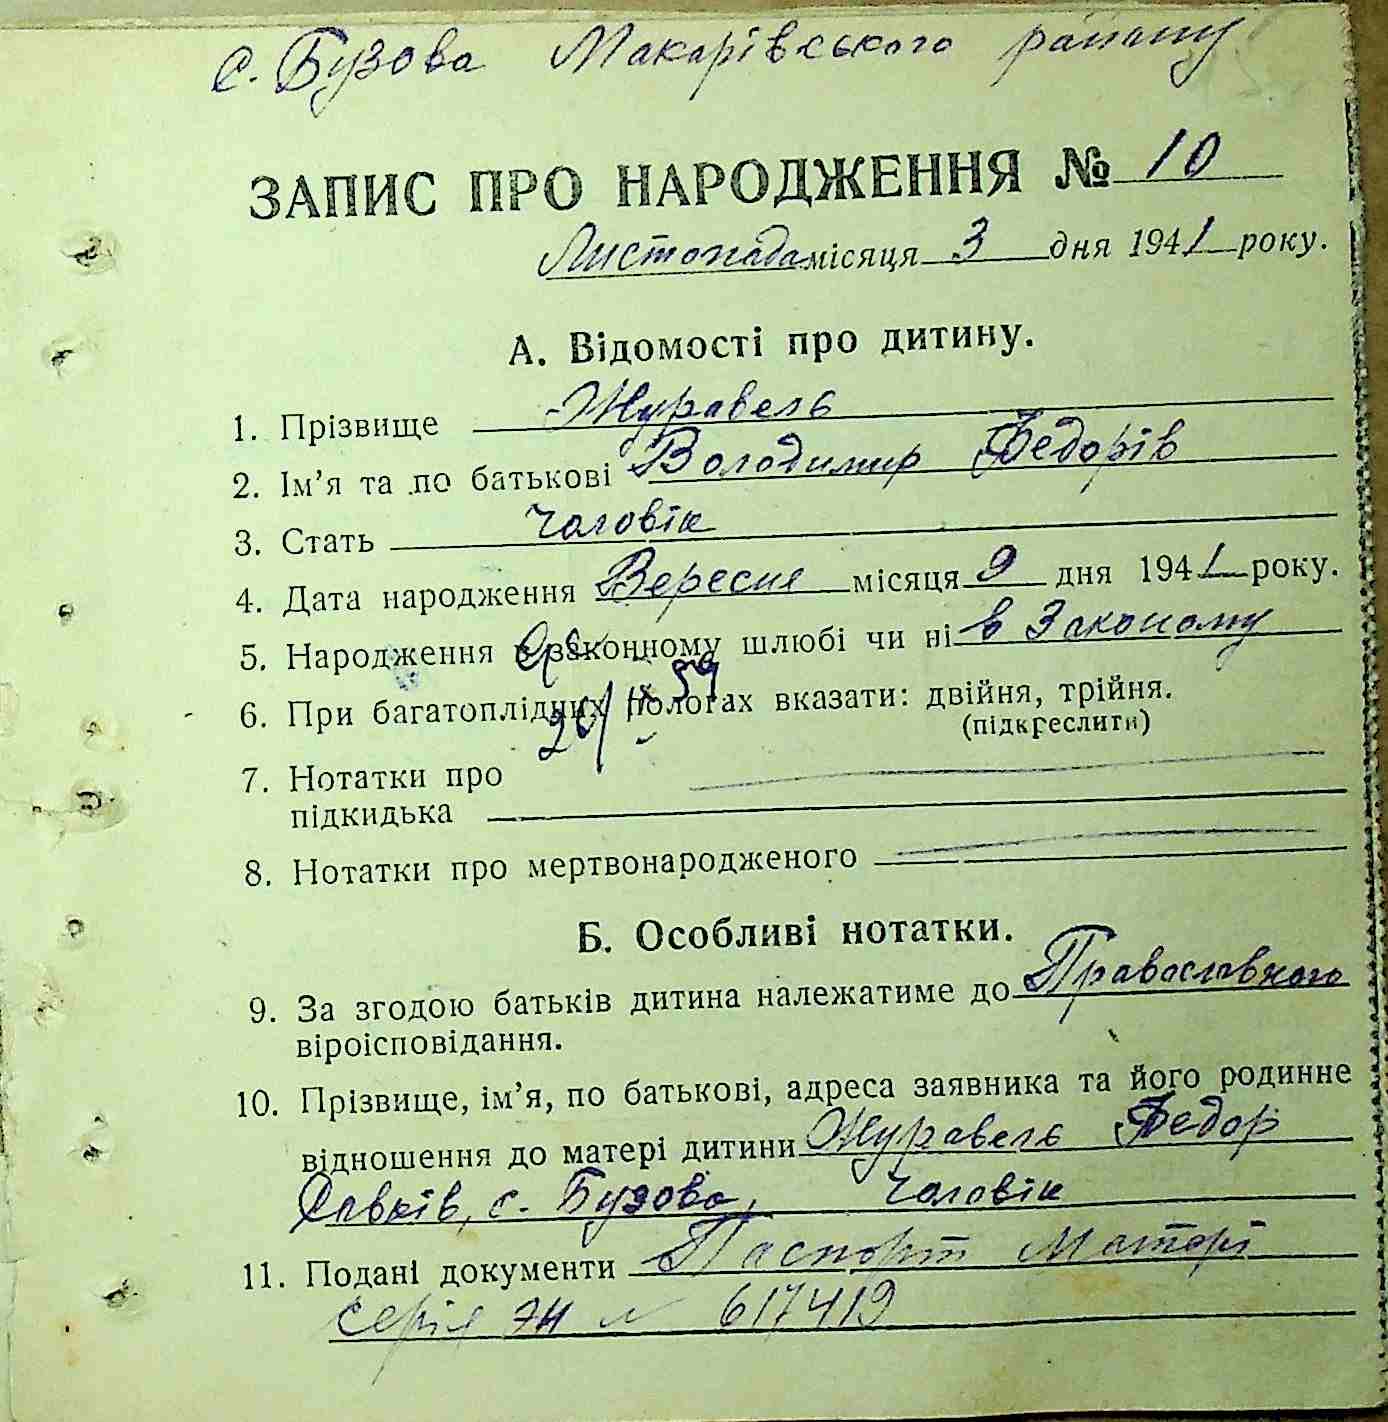 с. Бузова Макарівського району
ЗАПИС ПРО НАРОДЖЕННЯ № 10
Листопада місяця 3 дня 1941 року.
А. Відомості про дитину.
1. Прізвище Журавель
2. Ім'я та по батькові Володимир Федорів
3. Стать чоловік
4. Дата народження Вересня місяця 9 дня 1941 року.
5. Народження в законному шлюбі чи ні в Законому
6. При багатоплідних пологах вказати: двійня, трійня.
(підкреслити)
7. Нотатки про
підкидька
8. Нотатки про мертвонародженого
Б. Особливі нотатки.
9. За згодою батьків дитина належатиме до Православного
віроісповідання.
10. Прізвище, ім'я, по батькові, адреса заявника та його родинне
відношення до матері дитини Журавель Федор
Савків, с. Бузова, чоловік
11. Подані документи Паспорт Матері
серія № 617419